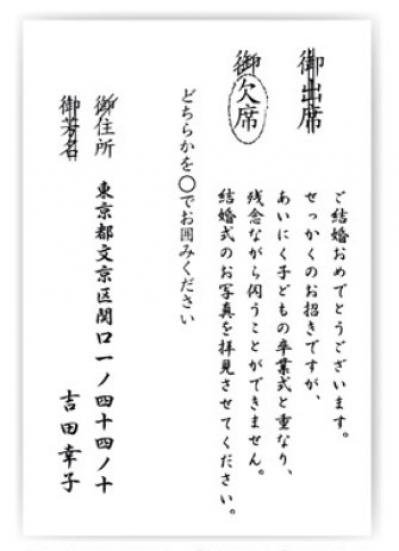 御出席
御欠席
ご結婚おめでとうございます。
せっかくのお招きですが、
あいにく子どもの卒業式と重なり、
残念ながら伺うことができません。
結婚式のお写真を拝見させてください。
どちらかを〇でお囲みください
御住所 東京都文京区関口一ノ四十四ノ十
御芳名 吉田幸子